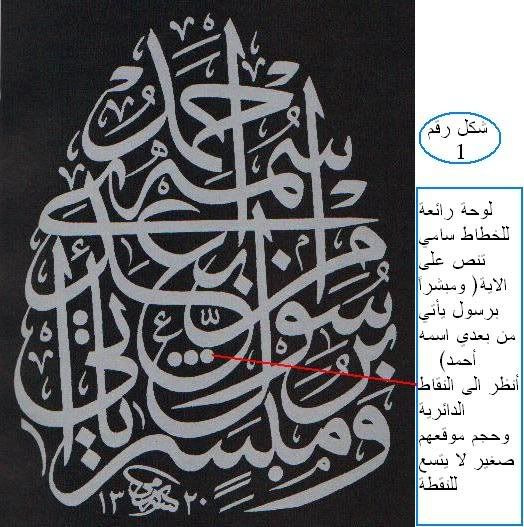 شكل رقم
1
لوحة رائعة
للخطاط سامي
تنص على
الاية( ومبشرا
برسول يأتي
من بعدي اسمه
أحمد)
أنظر الى النقاط
الدائرية
وحجم موقعهم
صغير لا يتسع
للنقطة
ومبشرا برسول يأتي من بعدي اسمه أحمد
سامي ١٣٢٠